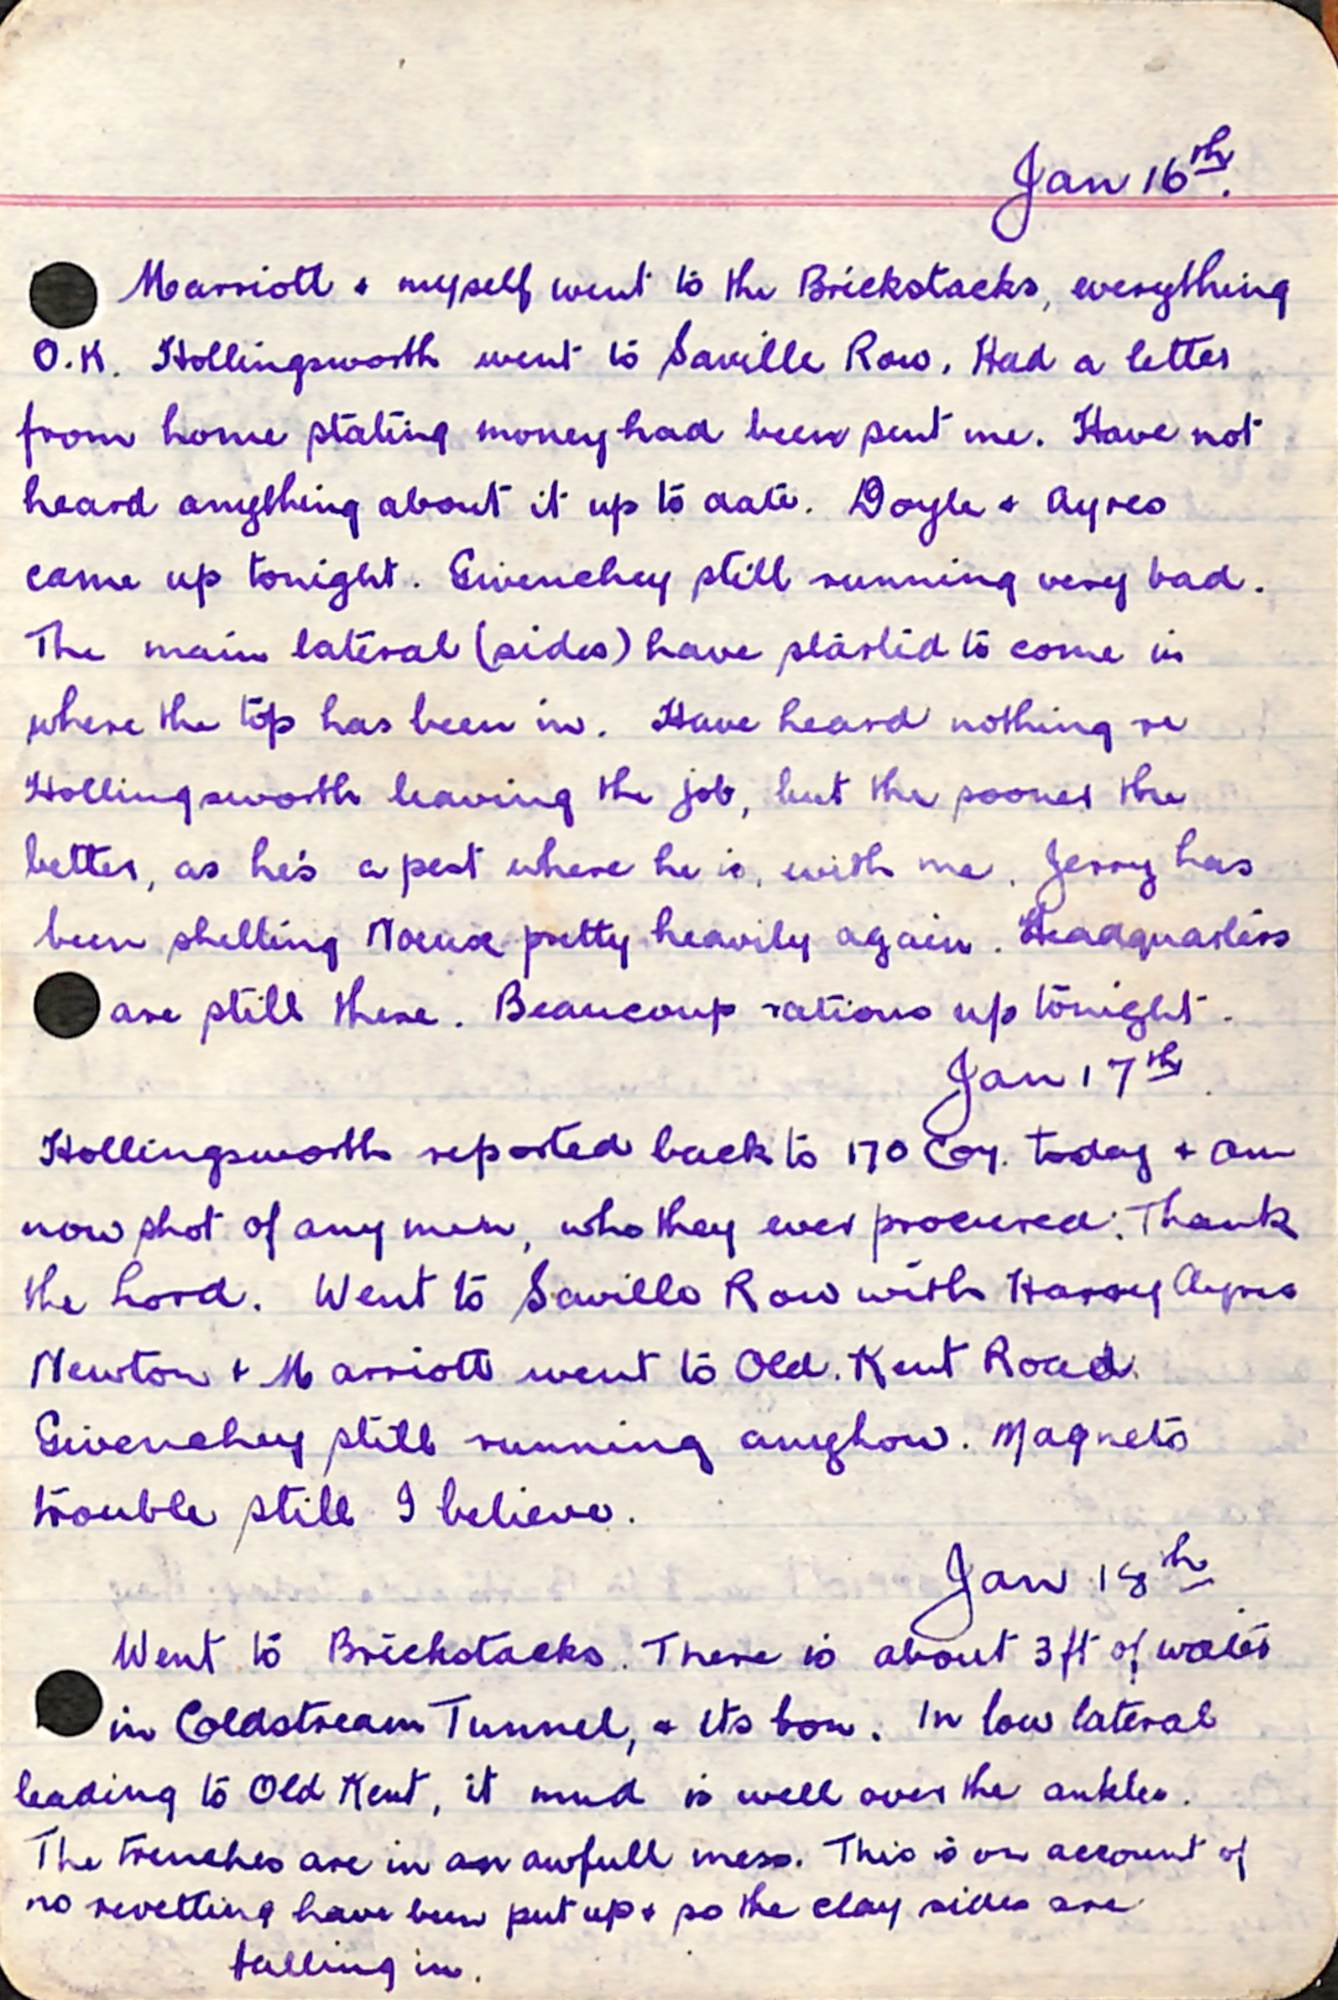 Jan 16th.
Marriott & myself went to the Brickstacks, everything
O.K. Hollingsworth went to Saville Row. Had a letter
from home stating money had been sent me. Have not
heard anything about it up to date. Doyle & Ayres
came up tonight. Givenchey still running very bad.
The main lateral (sides) have started to come in
where the top has been in. Have heard nothing re
Hollingsworth leaving the job, but the sooner the
better, as he's a pest where he is, with me. Jerry has
been shelling Noeux pretty heavily again. Headquarters
are still there. Beaucoup rations up tonight.
Jan 17th
Hollingsworth reported back to 170 Coy. today & am
now shot of any men, who they ever procured. Thank
the Lord. Went to Saville Row with Harry Ayres
Newton & Marriott went to Old. Kent Road.
Givenchey still running anyhow. Magneto
trouble still I believe.
Jan 18th
Went to Brickstacks. There is about 3 ft of water
in Coldstream Tunnel, & its bon. In low lateral
leading to Old Kent, it mud is well over the ankles.
The trenches are in an awfull mess. This is on account of
no revetting have been put up & so the clay sides are
falling in.